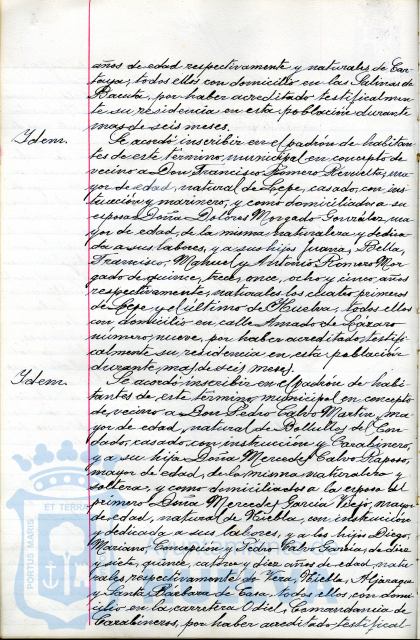 años de edad respectivamente y naturales de Car-
taya; todos ellos con domicilio en las Salinas de
Bacuta, por haber acreditado testificalmen-
te su residencia en esta población durante
mas de seis meses.
Idem.
Se acordó inscribir en el padrón de habitan-
tes de este término municipal en concepto de
vecino a Don Francisco Romero Revuelta, ma-
yor de edad, natural de Lepe, casado, con ins-
trucción y marinero, y como domiciliados a su
esposa Doña Dolores Morgado González, ma-
yor de edad, de la misma naturaleza y dedica-
da a sus labores, y a sus hijos Juana, Bella,
Francisco, Manuel y Antonio Romero Mor-
gado de quince, trece, once, ocho y cinco años
respectivamente, naturales los cuatro primeros
de Lepe y el último de Huelva, todos ellos
con domicilio en calle Amado de Lázaro
número nueve, por haber acreditado testifi-
calmente su residencia en esta población
durante mas de seis meses.
Idem.
Se acordó inscribir en el padrón de habi-
tantes de este término municipal en concepto
de vecino a Don Pedro Calvo Martín, ma-
yor de edad, natural de Bollullos del Con-
dado, casado, con instrucción y Carabinero,
y a su hija Doña Mercedes Calvo Raposo,
mayor de edad, de la misma naturaleza y
soltera, y como domiciliados a la esposa del
primero Doña Mercedes García Viejo, mayor
de edad, natural de Niebla, con instrucción
y dedicada a sus labores, y a los hijos Diego,
Mariano, Concepción y Pedro Calvo García, de diez
y siete, quince, catorce y diez años de edad, natu-
rales respectivamente de Vera, Niebla, Aljaraque
y Santa Bárbara de Casa, todos ellos con domi-
cilio en la carretera Odiel, Comandancia de
Carabineros, por haber acreditado testifical-
PORTUS MARIS
ET TERRAE